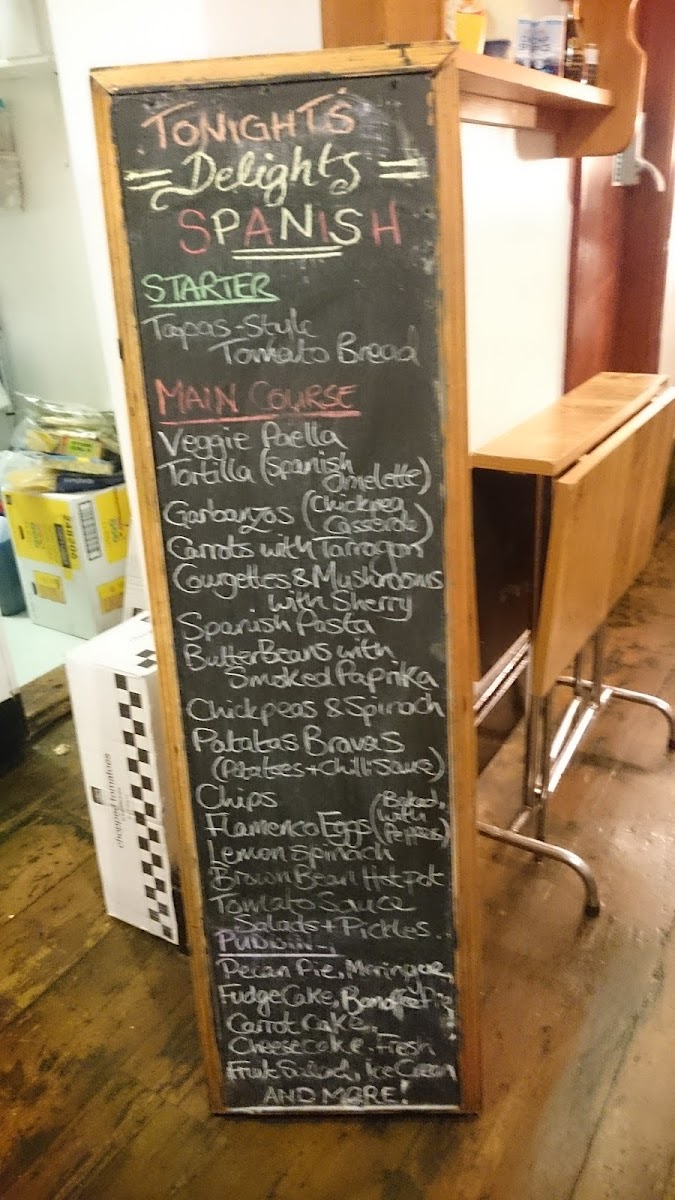 TONIGHT'S
Delights
SPANISH
STARTER
Tapas-Style
Tomato Bread
MAIN COURSE
Veggie Paella
Tortilla (Spanish
Omelette)
Garbanzos (Chickpea
Casserole)
Carrots with Tarragon
Courgettes & Mushrooms
with Sherry
Spanish Pasta
ButterBeans with
Smoked Paprika
Chickpeas & Spinach
Patatas Bravas
(Potatoes + Chilli Sauce)
Chips
Flamenco Eggs (Baked,
with
Peppers)
Lemon Spinach
Brown Bean Hotpot
Tomato Sauce
Salads + Pickles
PUDDING
Pecan Pie, Meringue,
Fudge Cake, Banoffee Pie,
Carrot Cake,
Cheesecake, Fresh
Fruit Salad, Ice Cream
AND MORE!
chopped tomatoes